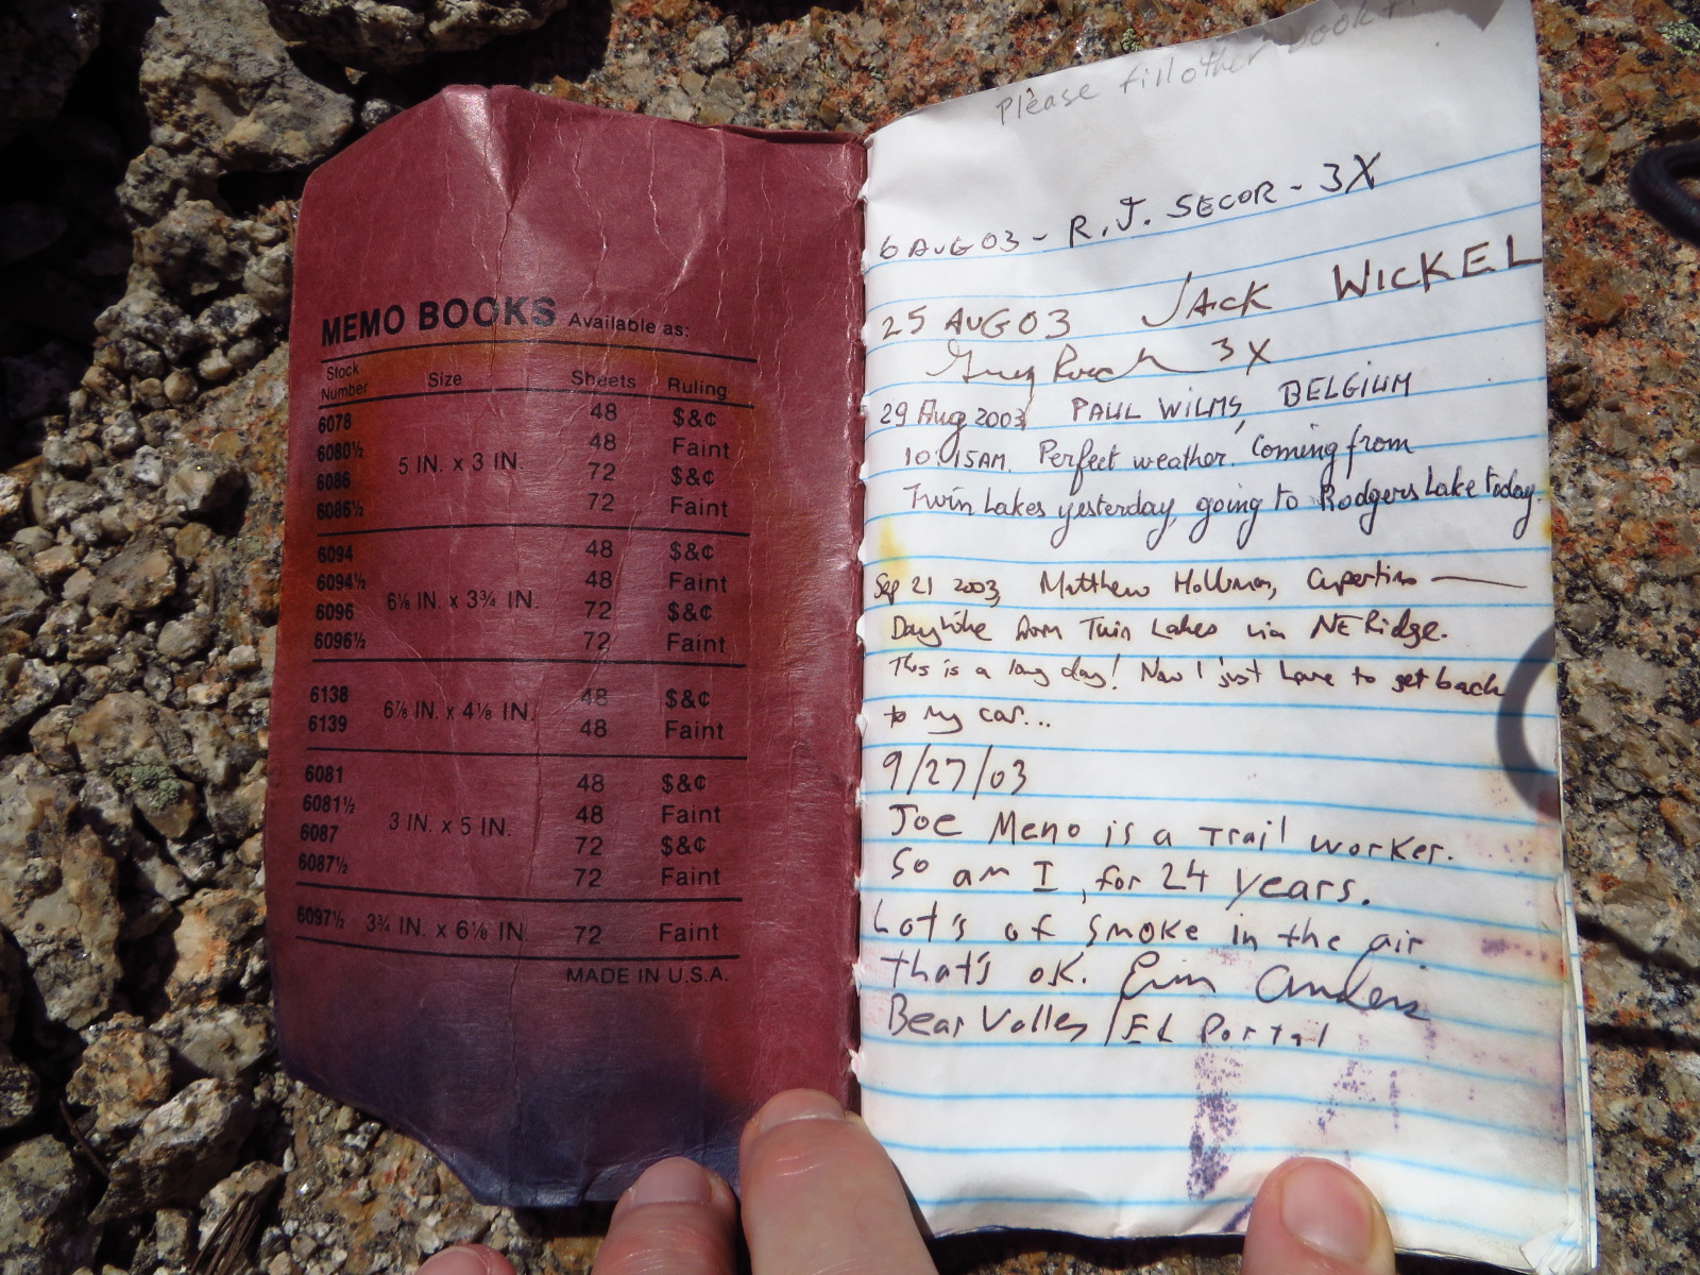 MEMO BOOKS Available as:
Stock Number Size Sheets Ruling
6078 48 $&¢
6080½ 48 Faint
5 IN. x 3 IN.
6086 72 $&¢
6086½ 72 Faint
6094 48 $&¢
6094½ 48 Faint
6⅛ IN. x 3¾ IN.
6096 72 $&¢
6096½ 72 Faint
6138 6⅞ IN. x 4⅛ IN. 48 $&¢
6139 48 Faint
6081 48 $&¢
6081½ 48 Faint
3 IN. x 5 IN.
6087 72 $&¢
6087½ 72 Faint
6097½ 3¾ IN. x 6⅛ IN 72 Faint
MADE IN U.S.A.
Please fill other book
6 AUG 03 - R.J. SECOR - 3X
25 AUG 03 JACK WICKEL
Greg 3X
29 Aug 2003, PAUL WILMS, BELGIUM
10:15AM. Perfect weather. Coming from
Twin Lakes yesterday, going to Rodgers Lake today.
Sep 21 2003, Matthew Holliman, Cupertino
Dayhike from Twin Lakes via NE Ridge.
This is a long day! Now I just have to get back
to my car...
9/27/03
Joe Meno is a Trail worker.
So am I, for 24 years.
Lot's of smoke in the air.
that's ok. Erin Anders
Bear Valley / EL Portal